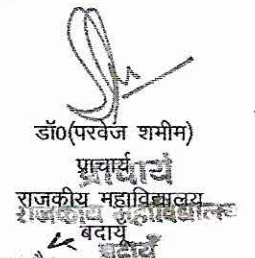 डॉ0(परवेज शमीम)
प्राचार्य
प्राचार्य
राजकीय महाविद्यालय
राजकीय महाविद्यालय
बदायूं
बदायूँ